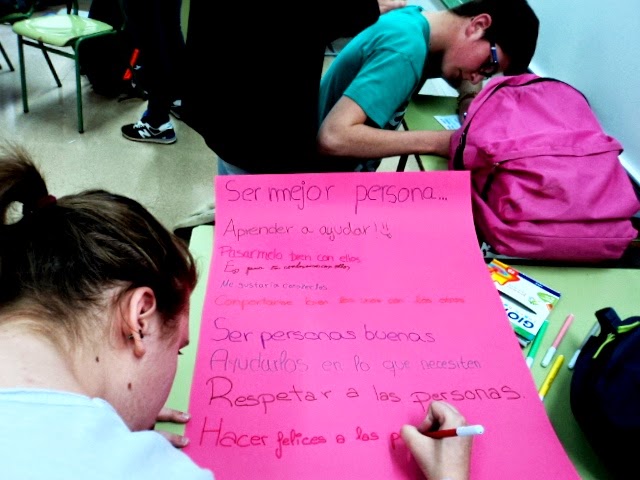 Ser mejor persona...
Aprender a ayudar!!!
Pasarmelo bien con ellos
Me gustaria conocerles
Comportarse bien los unos con los otros
Ser personas buenas
Ayudarlos en lo que necesiten
Respetar a las personas.
Hacer felices a las p
GIO